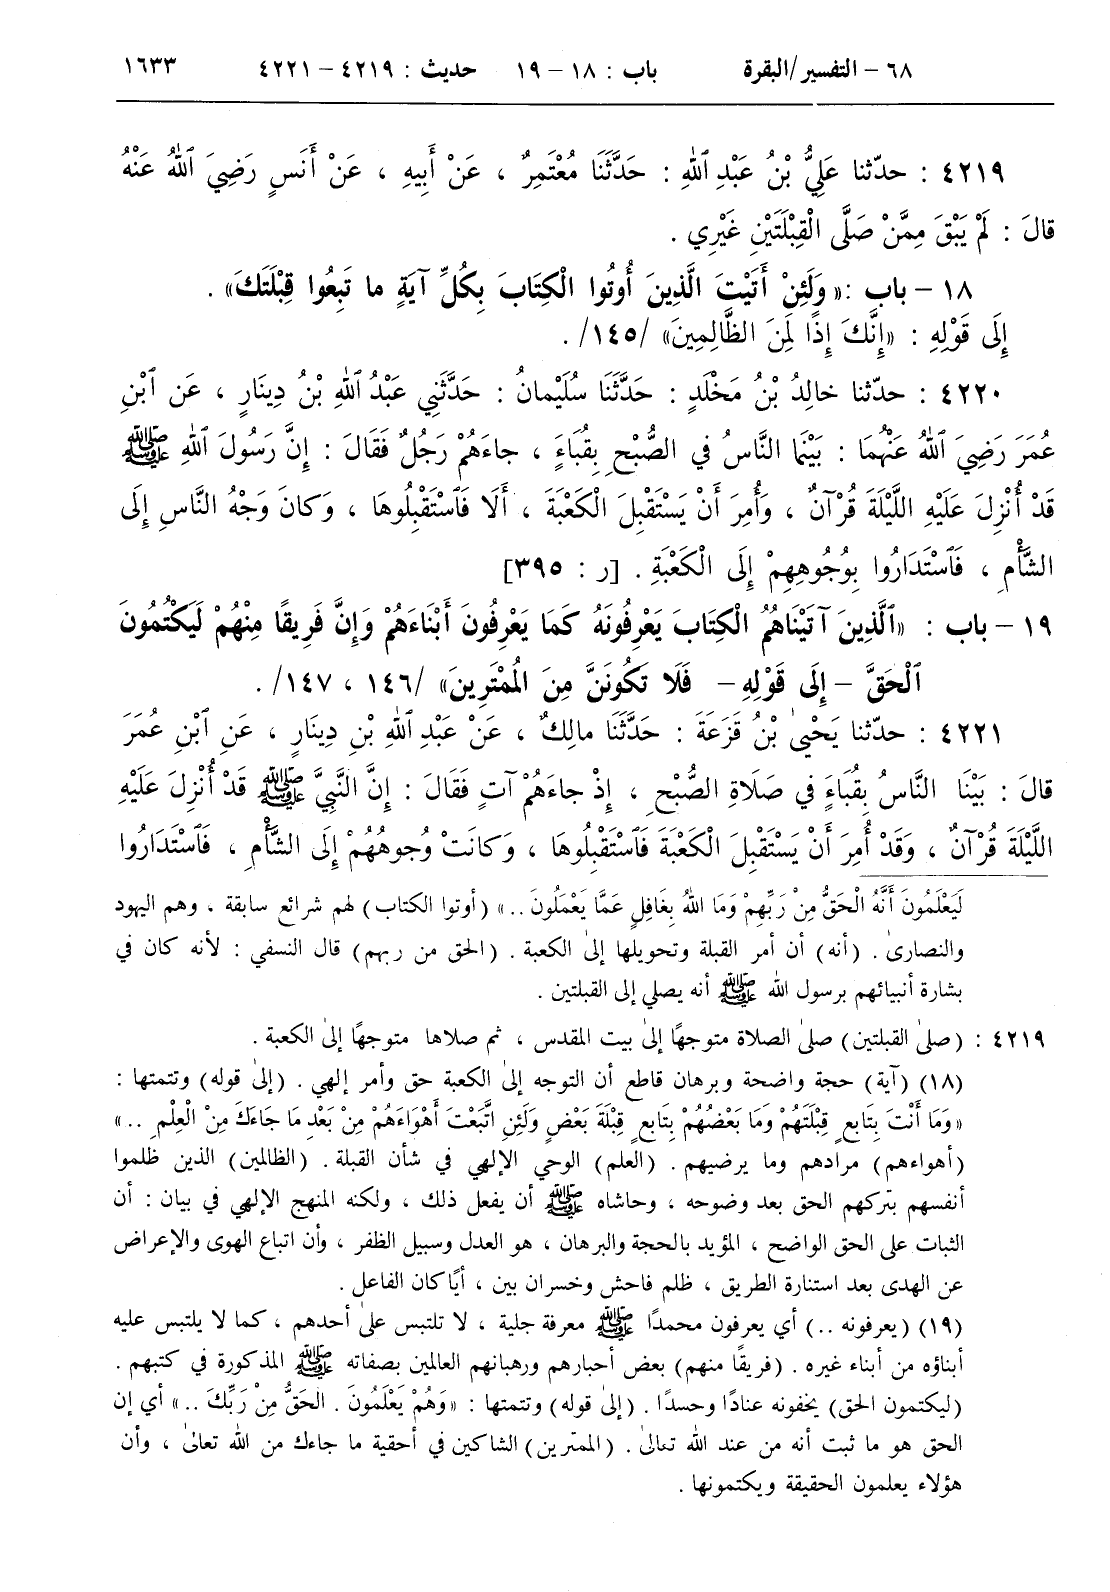 ٦٨ – التفسير/البقرة باب : ١٨ – ١٩ حديث : ٤٢١٩ – ٤٢٢١ ١٦٣٣
٤٢١٩ : حدّثنا عَلِيُّ بْنُ عَبْدِ ٱللهِ : حَدَّثَنَا مُعْتَمِرٌ ، عَنْ أَبِيهِ ، عَنْ أَنَسٍ رَضِيَ ٱللهُ عَنْهُ
قالَ : لَمْ يَبْقَ مِمَّنْ صَلَّى الْقِبْلَتَيْنِ غَيْرِي .
١٨ – باب : «وَلَئِنْ أَتَيْتَ الَّذِينَ أُوتُوا الْكِتَابَ بِكُلِّ آيَةٍ ما تَبِعُوا قِبْلَتَكَ» .
إِلَى قَوْلِهِ : «إِنَّكَ إِذًا لَمِنَ الظَّالِمِينَ» /١٤٥/ .
٤٢٢٠ : حدّثنا خالِدُ بْنُ مَخْلَدٍ : حَدَّثَنَا سُلَيْمانُ : حَدَّثَنِي عَبْدُ ٱللهِ بْنُ دِينَارٍ ، عَنِ ٱبْنِ
عُمَرَ رَضِيَ ٱللهُ عَنْهُمَا : بَيْنَمَا النَّاسُ في الصُّبْحِ بِقُبَاءٍ ، جاءَهُمْ رَجُلٌ فَقَالَ : إِنَّ رَسُولَ ٱللهِ ﷺ
قَدْ أُنْزِلَ عَلَيْهِ اللَّيْلَةَ قُرْآنٌ ، وَأُمِرَ أَنْ يَسْتَقْبِلَ الْكَعْبَةَ ، أَلَا فَٱسْتَقْبِلُوهَا ، وَكانَ وَجْهُ النَّاسِ إِلَى
الشَّأْمِ ، فَٱسْتَدَارُوا بِوُجُوهِهِمْ إِلَى الْكَعْبَةِ . [ر : ٣٩٥]
١٩ – باب : «ٱلَّذِينَ آتَيْنَاهُمُ الْكِتَابَ يَعْرِفُونَهُ كَمَا يَعْرِفُونَ أَبْنَاءَهُمْ وَإِنَّ فَرِيقًا مِنْهُمْ لَيَكْتُمُونَ
ٱلْحَقَّ – إِلَى قَوْلِهِ – فَلَا تَكُونَنَّ مِنَ الْمُمْتَرِينَ» /١٤٦ ، ١٤٧/ .
٤٢٢١ : حدّثنا يَحْيىٰ بْنُ قَزَعَةَ : حَدَّثَنَا مالِكٌ ، عَنْ عَبْدِ ٱللهِ بْنِ دِينَارٍ ، عَنِ ٱبْنِ عُمَرَ
قالَ : بَيْنَا النَّاسُ بِقُبَاءٍ في صَلَاةِ الصُّبْحِ ، إِذْ جاءَهُمْ آتٍ فَقَالَ : إِنَّ النَّبِيَّ ﷺ قَدْ أُنْزِلَ عَلَيْهِ
اللَّيْلَةَ قُرْآنٌ ، وَقَدْ أُمِرَ أَنْ يَسْتَقْبِلَ الْكَعْبَةَ فَٱسْتَقْبِلُوهَا ، وَكانَتْ وُجُوهُهُمْ إِلَى الشَّأْمِ ، فَٱسْتَدَارُوا
لَيَعْلَمُونَ أَنَّهُ الْحَقُّ مِنْ رَبِّهِمْ وَمَا اللهُ بِغَافِلٍ عَمَّا يَعْمَلُونَ ..» (أوتوا الكتاب) لهم شرائع سابقة ، وهم اليهود
والنصارىٰ . (أنه) أن أمر القبلة وتحويلها إلىٰ الكعبة . (الحق من ربهم) قال النسفي : لأنه كان في
بشارة أنبيائهم برسول الله ﷺ أنه يصلي إلى القبلتين .
٤٢١٩ : (صلىٰ القبلتين) صلىٰ الصلاة متوجهًا إلىٰ بيت المقدس ، ثم صلاها متوجهًا إلىٰ الكعبة .
(١٨) (آية) حجة واضحة وبرهان قاطع أن التوجه إلىٰ الكعبة حق وأمر إلهي . (إلىٰ قوله) وتتمتها :
«وَمَا أَنْتَ بِتَابِعٍ قِبْلَتَهُمْ وَمَا بَعْضُهُمْ بِتَابِعٍ قِبْلَةَ بَعْضٍ وَلَئِنِ اتَّبَعْتَ أَهْوَاءَهُمْ مِنْ بَعْدِ مَا جَاءَكَ مِنْ الْعِلْمِ ..»
(أهواءهم) مرادهم وما يرضيهم . (العلم) الوحي الإلهي في شأن القبلة . (الظالمين) الذين ظلموا
أنفسهم بتركهم الحق بعد وضوحه ، وحاشاه ﷺ أن يفعل ذلك ، ولكنه المنهج الإلهي في بيان : أن
الثبات على الحق الواضح ، المؤيد بالحجة والبرهان ، هو العدل وسبيل الظفر ، وأن اتباع الهوى والإعراض
عن الهدى بعد استنارة الطريق ، ظلم فاحش وخسران بين ، أيًا كان الفاعل .
(١٩) (يعرفونه ..) أي يعرفون محمدًا ﷺ معرفة جلية ، لا تلتبس علىٰ أحدهم ، كما لا يلتبس عليه
أبناؤه من أبناء غيره . (فريقًا منهم) بعض أحبارهم ورهبانهم العالمين بصفاته ﷺ المذكورة في كتبهم .
(ليكتمون الحق) يخفونه عنادًا وحسدًا . (إلىٰ قوله) وتتمتها : «وَهُمْ يَعْلَمُونَ . الْحَقُّ مِنْ رَبِّكَ ..» أي إن
الحق هو ما ثبت أنه من عند الله تعالىٰ . (الممترين) الشاكين في أحقية ما جاءك من الله تعالىٰ ، وأن
هؤلاء يعلمون الحقيقة ويكتمونها .